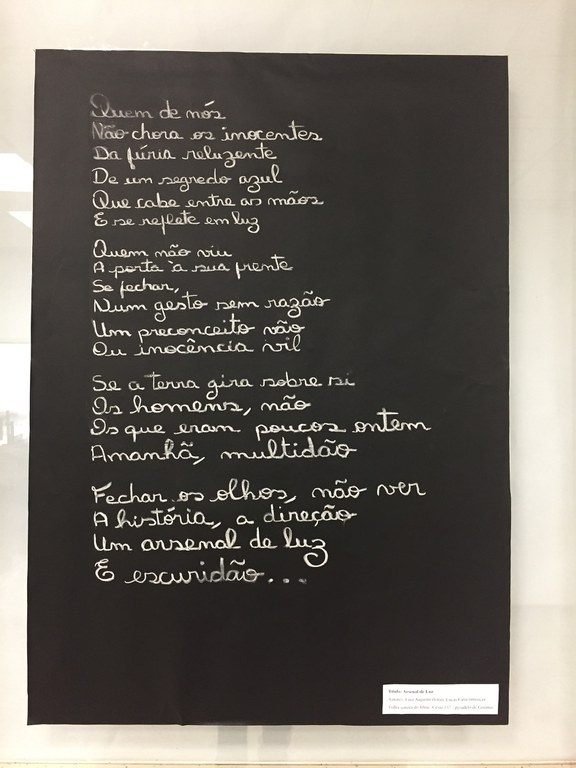 Quem de nós
Não chora os inocentes
Da fúria reluzente
De um segredo azul
Que cabe entre as mãos
E se reflete em luz
Quem não viu
A porta à sua frente
Se fechar,
Num gesto sem razão
Um preconceito vão
Ou inocência vil
Se a terra gira sobre si
Os homens, não
Os que eram poucos ontem
Amanhã, multidão
Fechar os olhos, não ver
A história, a direção
Um arsenal de luz
E escuridão...
Título: Arsenal de Luz